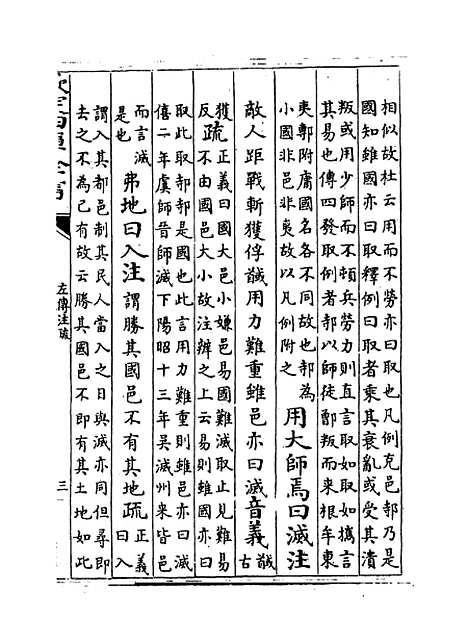 相似故杜云用而不勞亦曰取也凡例克邑邿乃是
國知雖國亦曰取釋例曰取者乘其衰亂或受其潰
叛或用少師而不頓兵勞力則直言取如取如攜言
其易也傳四發取例者邿以師徒鄫叛而來根牟東
夷鄟附庸國名各不同故也邿為
小國非邑非夷故以凡例附之
用大師焉曰滅注
敵人距戰斬獲俘馘用力難重雖邑亦曰滅音義馘古
獲
反疏正義曰國大邑小嫌邑易國難滅取止見難易
不由國邑大小故注辨之上云易則雖國亦曰
取此取邿邿是國也此言用力難重則雖邑亦曰滅
僖二年虞師晉師滅下陽昭十三年吳滅州來皆邑
而言滅
是也
弗地曰入注謂勝其國邑不有其地疏正義曰入
謂入其都邑制其民人當入之日與滅亦同但尋即
去之不為己有故云勝其國邑不即有其土地如此
左傳注疏
三